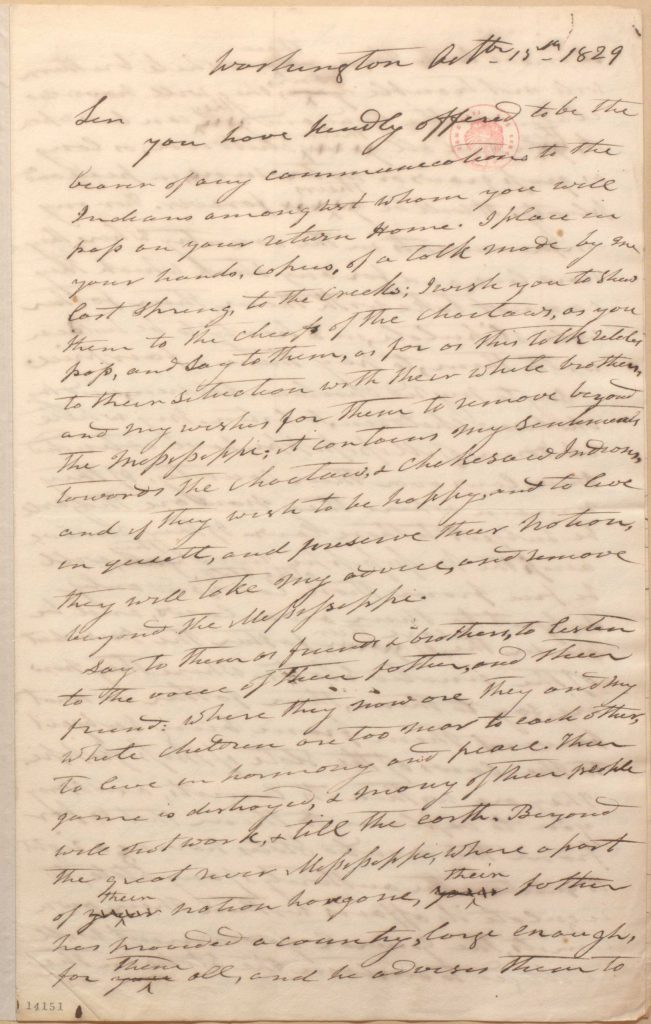 Washington Octbr 15th 1829
Sir
you have kindly offered to be the
bearer of any communications to the
Indians amongst whom you will
pass on your return Home. I place in
your hands, copies, of a talk made by me
last spring, to the Creeks; I wish you to shew
them to the chiefs of the Choctaws, as you
pass, and say to them, as far as this talk relates
to their situation with their white brothers,
and my wishes for them to remove beyond
the Mississippi; it contains my sentiments
towards the Choctaw, & Chekesaw Indians,
and if they wish to be happy, and to live
in quiett, and preserve their Nation,
they will take my advice, and remove
beyond the Mississippi.
Say to them as friends & brothers, to listen
to the voice of their father, and their
friend: where they now are they and my
white children are too near to each other,
to live in harmony and peace. Their
game is destroyed, & many of their people
will not work, & till the earth. Beyond
the great river Mississippi, where a part
of their nation has gone, their father
has provided a country, large enough,
for them all, and he advises them to
14151